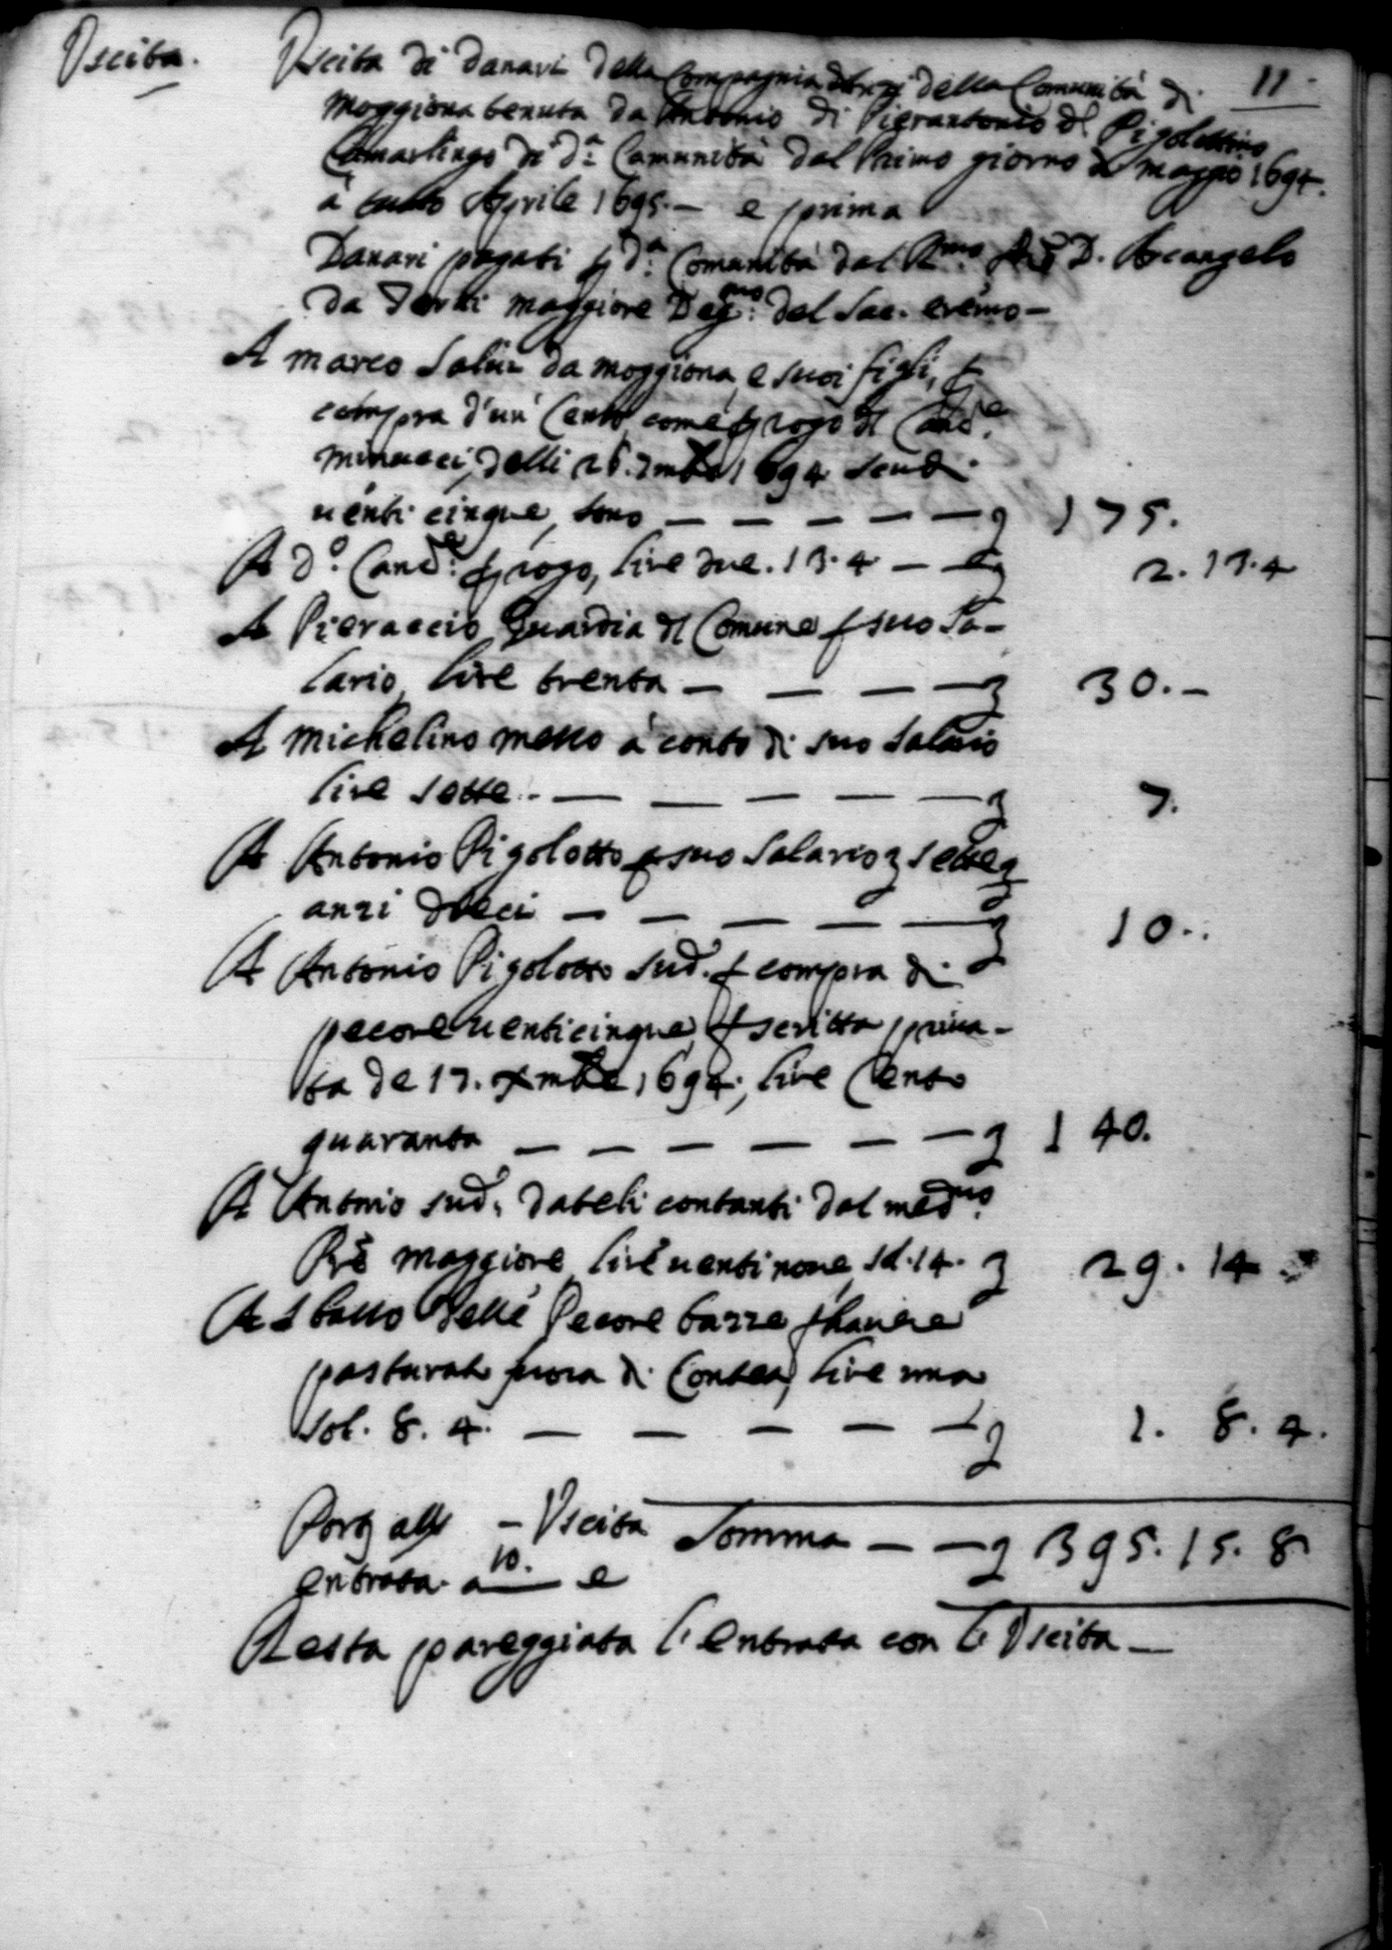 Uscita.
Uscita di danari della Compagnia anzi della Comunità di 11
Moggiona tenuta da Antonio di Pierantonio del Pigolottino
Camarlingo di d.a Comunità dal Primo giorno di maggio 1694.
à tutto Aprile 1695.— e prima
Danari pagati p d.a Comunità dal R.mo Pre D. Arcangelo
da Terni maggiore Deg.mo del Sac. eremo—
A marco Salui da moggiona, e suoi figli, p
compra d'un Cento, come p rogo del Canc.e
minucci, delli 26. 9mbre 1694 scudi
uenti cinque, sono — — — — — 175.
A d.o Canc.e p rogo, lire due. 13. 4 — — 2. 13. 4
A Pieraccio Guardia del Comune p suo Sa-
lario, lire trenta — — — — 30. —
A michelino messo à conto di suo Salario
lire sette.. — — — — — 7.
A Antonio Pigolotto p suo Salario sette
anzi dieci — — — — — 10..
A Antonio Pigolotto sud. p compra di
pecore uenticinque, p scritta priua-
ta de 17. xmbre 1694., lire Cento
quaranta — — — — — — 140.
A Antonio sud. dateli contanti dal med.mo
Pre maggiore, lire uentinoue, sd. 14. 29. 14
A Sbatto delle Pecore bazze p hauere
pasturato fuora di Contea, lire una
sol. 8. 4. — — — — — 1. 8. 4.
— Uscita Somma — — 395. 15. 8
entrata. a 10. e
Resta pareggiata l'entrata con l'Uscita —